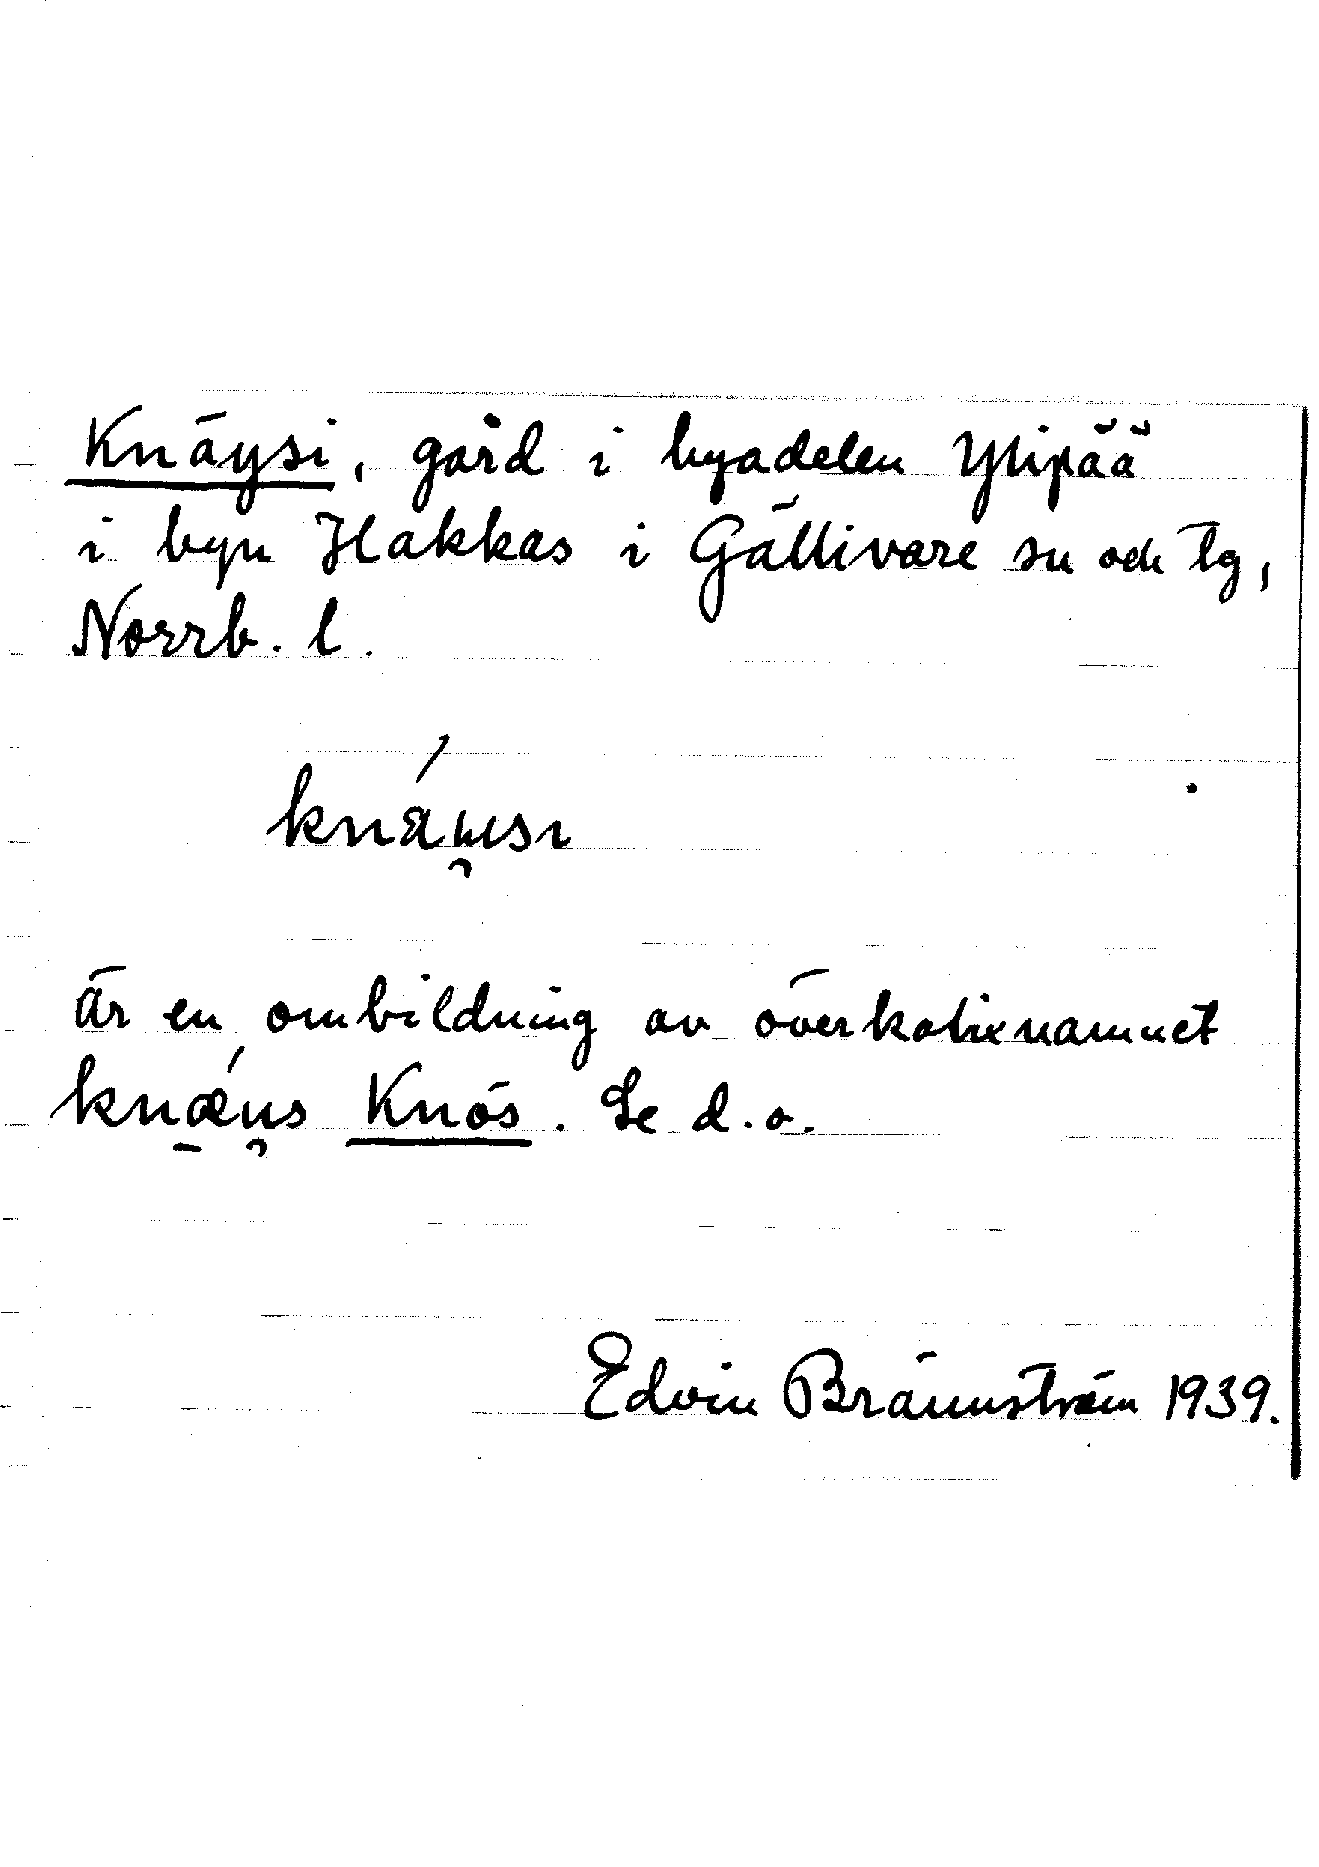 Knäysi, gård i byadelen Ylipää
i byn Hakkas i Gällivare sn och tg,
Norrb. l.
är en ombildning av överkalixnamnet
Knös. Se d.o.
Edvin Brännström 1939.